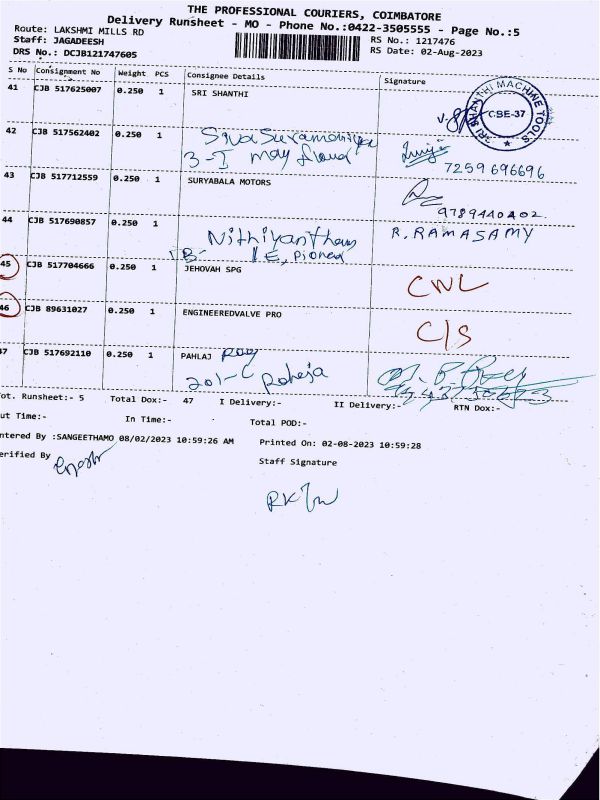 THE PROFESSIONAL COURIERS, COIMBATORE
Delivery Runsheet - MO - Phone No.:0422-3505555 - Page No.:5
Route: LAKSHMI MILLS RD
RS No.: 1217476
Staff: JAGADEESH
RS Date: 02-Aug-2023
DRS No.: DCJB121747605
S No Consignment No Weight PCS Consignee Details Signature
41 CJB 517625007 0.250 1 SRI SHANTHI
SRI SHANTHI MACHINE TOOLS
CBE-37
42 CJB 517562402 0.250 1
3-I may
7259696696
43 CJB 517712559 0.250 1 SURYABALA MOTORS
9789440402.
44 CJB 517690857 0.250 1 R. RAMASAMY
45 CJB 517704666 0.250 1 JEHOVAH SPG
CNL
46 CJB 89631027 0.250 1 ENGINEEREDVALVE PRO
C/S
47 CJB 517692110 0.250 1 PAHLAJ ROY
201-C Raheja
Tot. Runsheet:- 5 Total Dox:- 47 I Delivery:- II Delivery:- RTN Dox:-
ut Time:- In Time:- Total POD:-
ntered By :SANGEETHAMO 08/02/2023 10:59:26 AM Printed On: 02-08-2023 10:59:28
erified By
Staff Signature